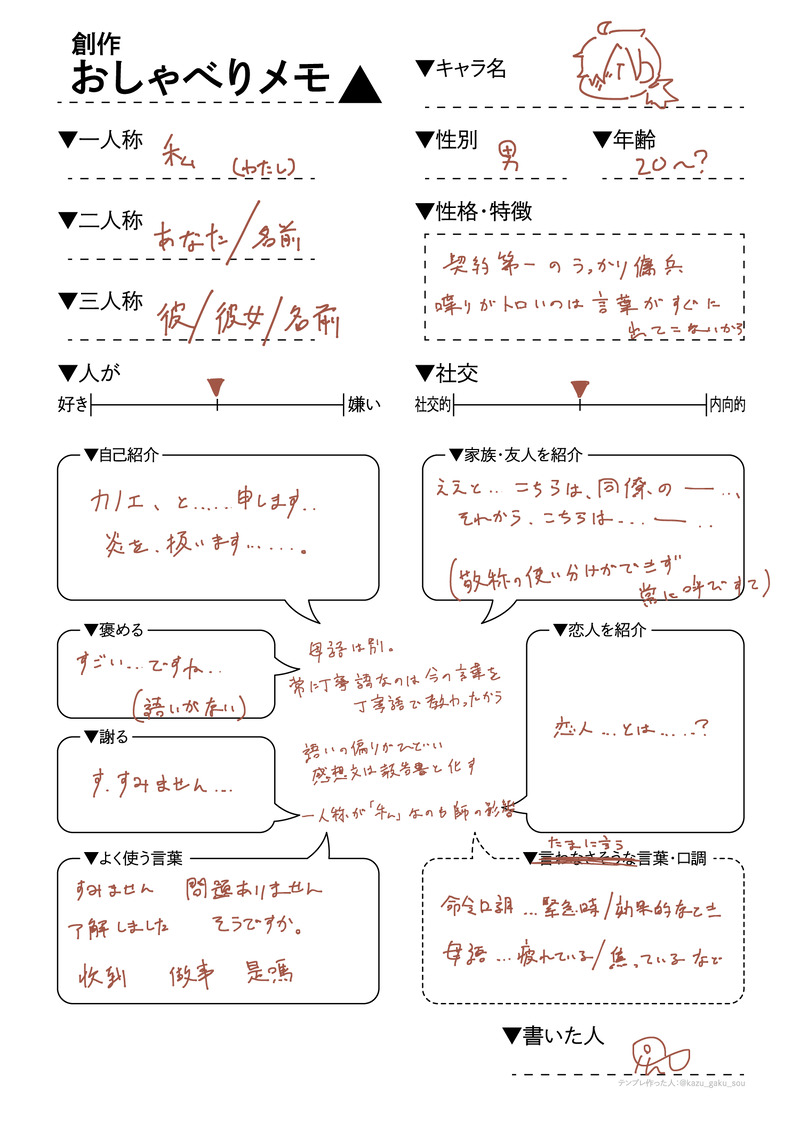 創作
おしゃべりメモ▲
▼キャラ名
▼一人称 私 (わたし)
▼性別 男
▼年齢 20〜?
▼二人称 あなた/名前
▼性格・特徴
契約第一のうっかり傭兵
喋りがトロいのは言葉がすぐに
出てこないから
▼三人称 彼/彼女/名前
▼人が
好き 嫌い
▼社交
社交的 内向的
▼自己紹介
カノエ、と.....申します..
炎を、扱います......。
▼家族・友人を紹介
ええと.. こちらは、同僚の ー ..、
それから、こちらは... ー ..
(敬称の使い分けができず
常に呼びすて)
▼褒める
すごい...ですね..
(語いがない)
母語は別。
常に丁寧語なのは今の言葉を
丁寧語で教わったから
▼恋人を紹介
恋人...とは.....?
▼謝る
す、すみません...
語いの偏りがひどい
感想文は報告書と化す
一人称が「私」なのも師の影響
▼よく使う言葉
すみません 問題ありません
了解しました そうですか。
收到 做事 是嗎
たまに言う
▼言わなさそうな言葉・口調
命令口調...緊急時/効果的なとき
母語...疲れている/焦っているなど
▼書いた人
テンプレ作った人:@kazu_gaku_sou